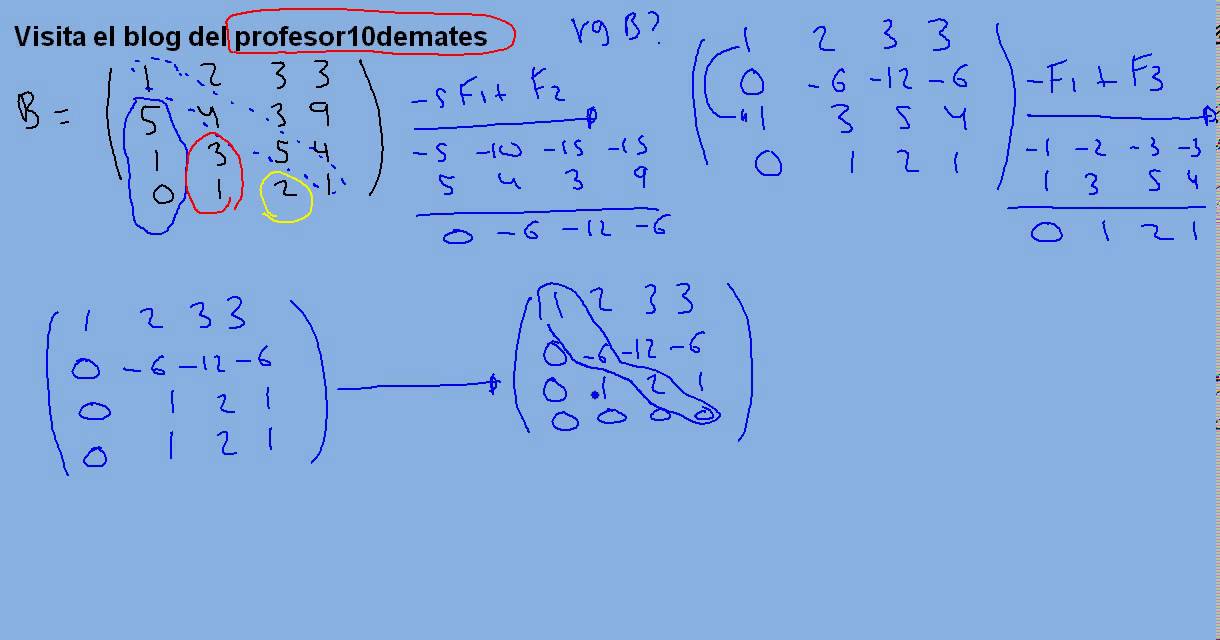 Visita el blog del profesor10demates
rg B?
B =
1 2 3 3
5 4 3 9
1 3 5 4
0 1 2 1
-5F1 + F2
-5 -10 -15 -15
5 4 3 9
0 -6 -12 -6
1 2 3 3
0 -6 -12 -6
1 3 5 4
0 1 2 1
-F1 + F3
-1 -2 -3 -3
1 3 5 4
0 1 2 1
1 2 3 3
0 -6 -12 -6
0 1 2 1
0 1 2 1
1 2 3 3
0 -6 -12 -6
0 1 2 1
0 0 0 0